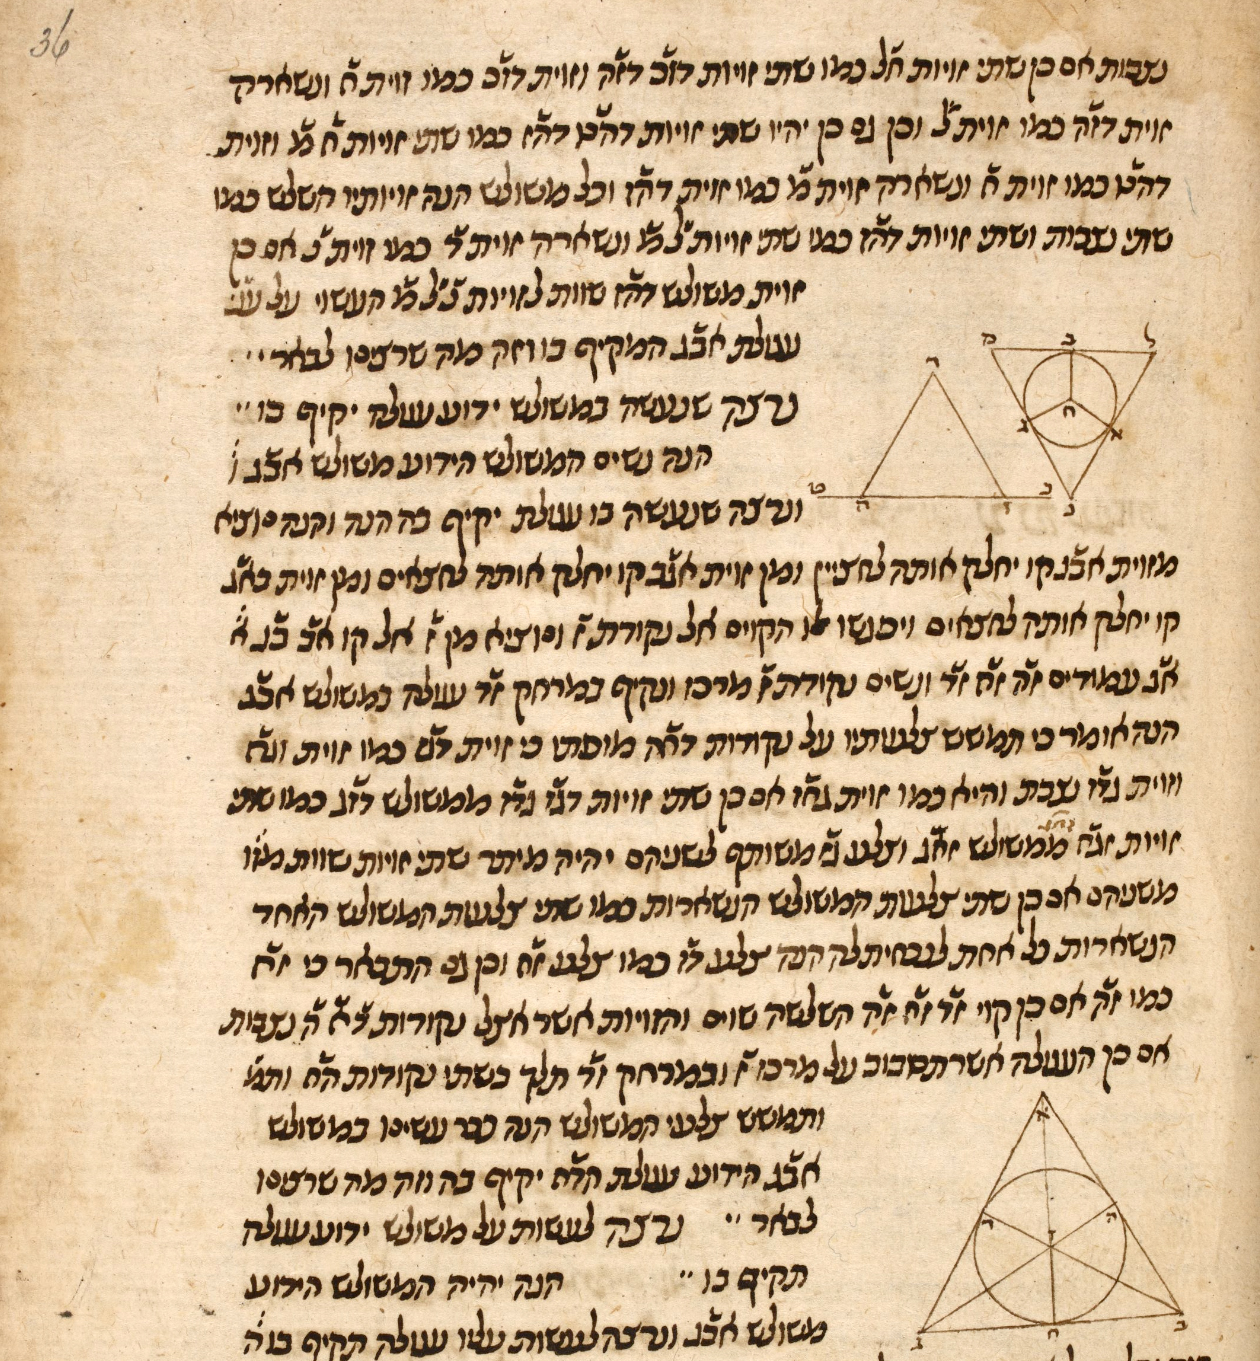 36
נצבות אם כן שתי זויות אל כמו שתי זויות דזכ דזה וזוית דזכ כמו זוית א ונשארה
זוית דזה כמו זוית ל וכן גם כן יהיו שתי זויות דהט דהז כמו שתי זויות א מ וזוית
דהט כמו זוית א ונשארה זוית מ כמו זוית דהז וכל משולש הנה זויותיו השלש כמו
שתי נצבות ושתי זויות דהז כמו שתי זויות ל מ ונשארה זוית ד כמו זוית נ אם כן
זוית משולש דהז שוות לזויות נ ל מ העשוי על
עגולת אבג המקיף בו וזה מה שרצינו לבאר
נרצה שנעשה במשולש ידוע עגולה יקיף בו
הנה נשים המשולש הידוע משולש אבג
ונרצה שנעשה בו עגולת יקיף בה הנה והנה נוציא
מזוית אבג קו יחלק אותה לחציין ומן זוית אגב קו יחלק אותה לחצאים ומן זוית באג
קו יחלק אותה לחצאים ויפגשו הקוים אל נקודת ז ונוציא מן ז אל קו אב בג
אג עמודים זה זח זד ונשים נקודת ז מרכז ונקיף במרחק זד עגולה במשולש אבג
הנה אומר כי תמשש צלעותיו על נקודות דחה מופתו כי זוית כמו זוית
וזוית גדז נצבת והיא כמו זוית גחז אם כן שתי זויות דגז גדז ממשולש דזג כמו שתי
זויות זגח ממשולש זחג וצלע גז משותף לשניהם יהיה מיתר שתי זויות שוות
משניהם אם כן שתי צלעות המשולש הנשארות כמו שתי צלעות המשולש האחד
הנשארות כל אחת לגבחיתלה הנה צלע דז כמו צלע זח וכן גם התבאר כי זח
כמו זה אם כן קוי זד זח זה השלשה שוים והזויות אשר אצל נקודות ד ח ה נצבות
אם כן העגולה אשר תסבוב על מרכז ז ובמרחק זד תלך בשתי נקודות הח
ותמשש צלעי המשולש הנה כבר עשינו במשולש
אבג הידוע עגולת הדח יקיף בה וזה מה שרצינו
לבאר נרצה לעשות על משולש ידוע עגולה
תקיף בו הנה יהיה המשולש הידוע
משולש אבג ונרצה לעשות עליו עגולה תקיף בו
ד כ ב ל
ח
ג א
ט ה ז כ נ
א
ד ה
ז
ג ח ב